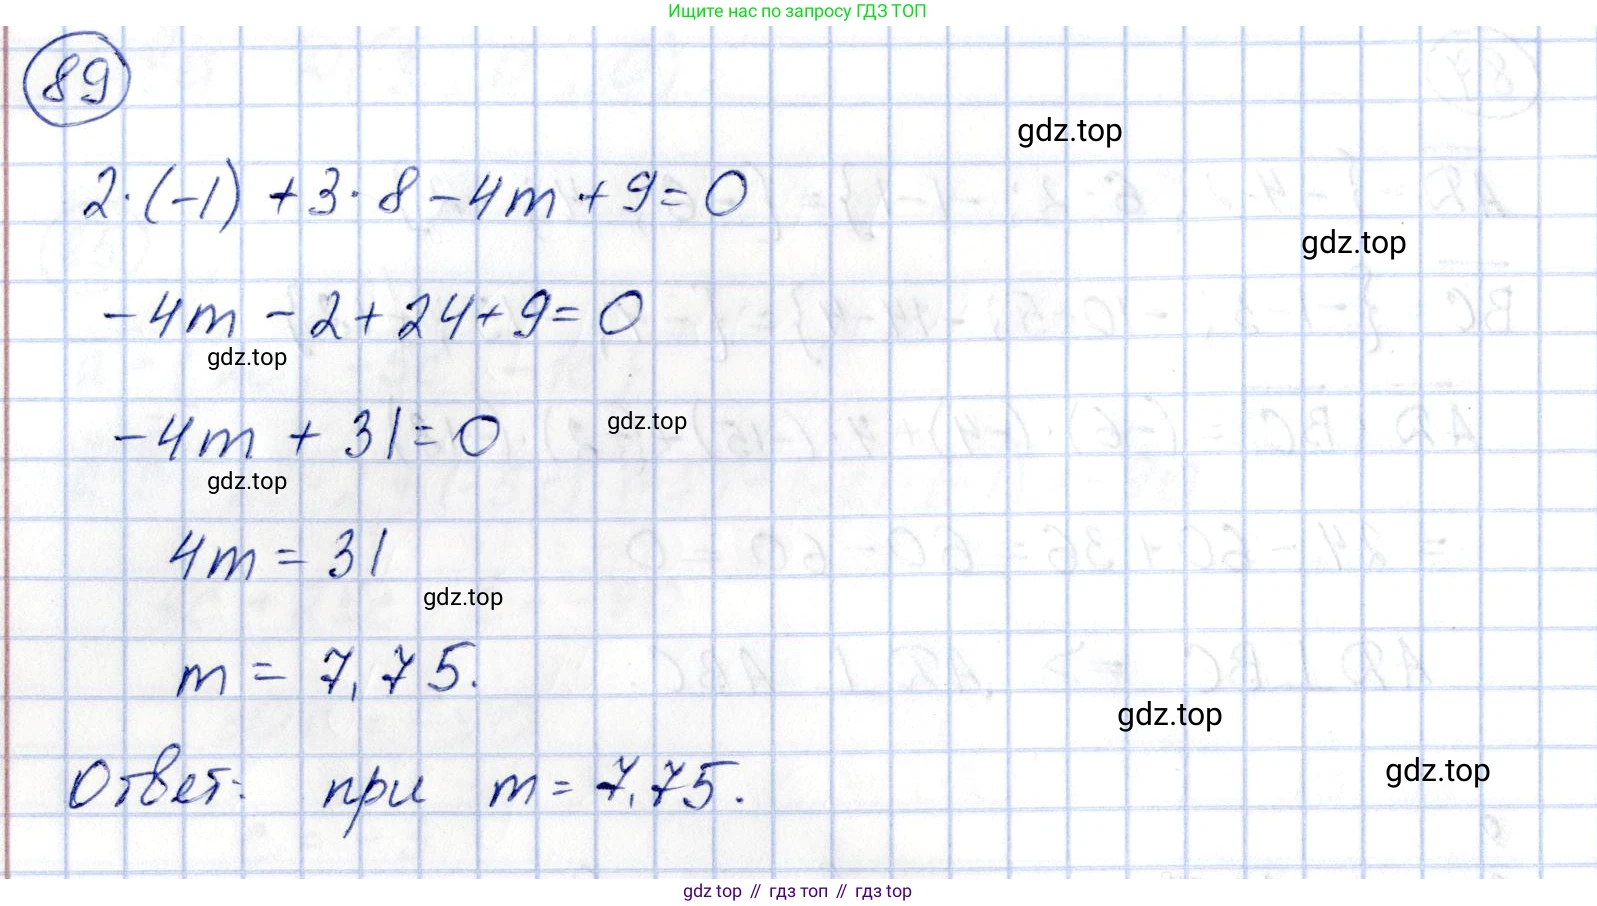 Ищите нас по запросу ГДЗ ТОП
89
gdz.top
2·(-1) + 3·8 - 4m + 9 = 0
gdz.top
-4m - 2 + 24 + 9 = 0
gdz.top
-4m + 31 = 0
gdz.top
gdz.top
4m = 31
gdz.top
m = 7,75.
gdz.top
Ответ: при m = 7,75.
gdz.top
gdz top // гдз топ // gdz.top